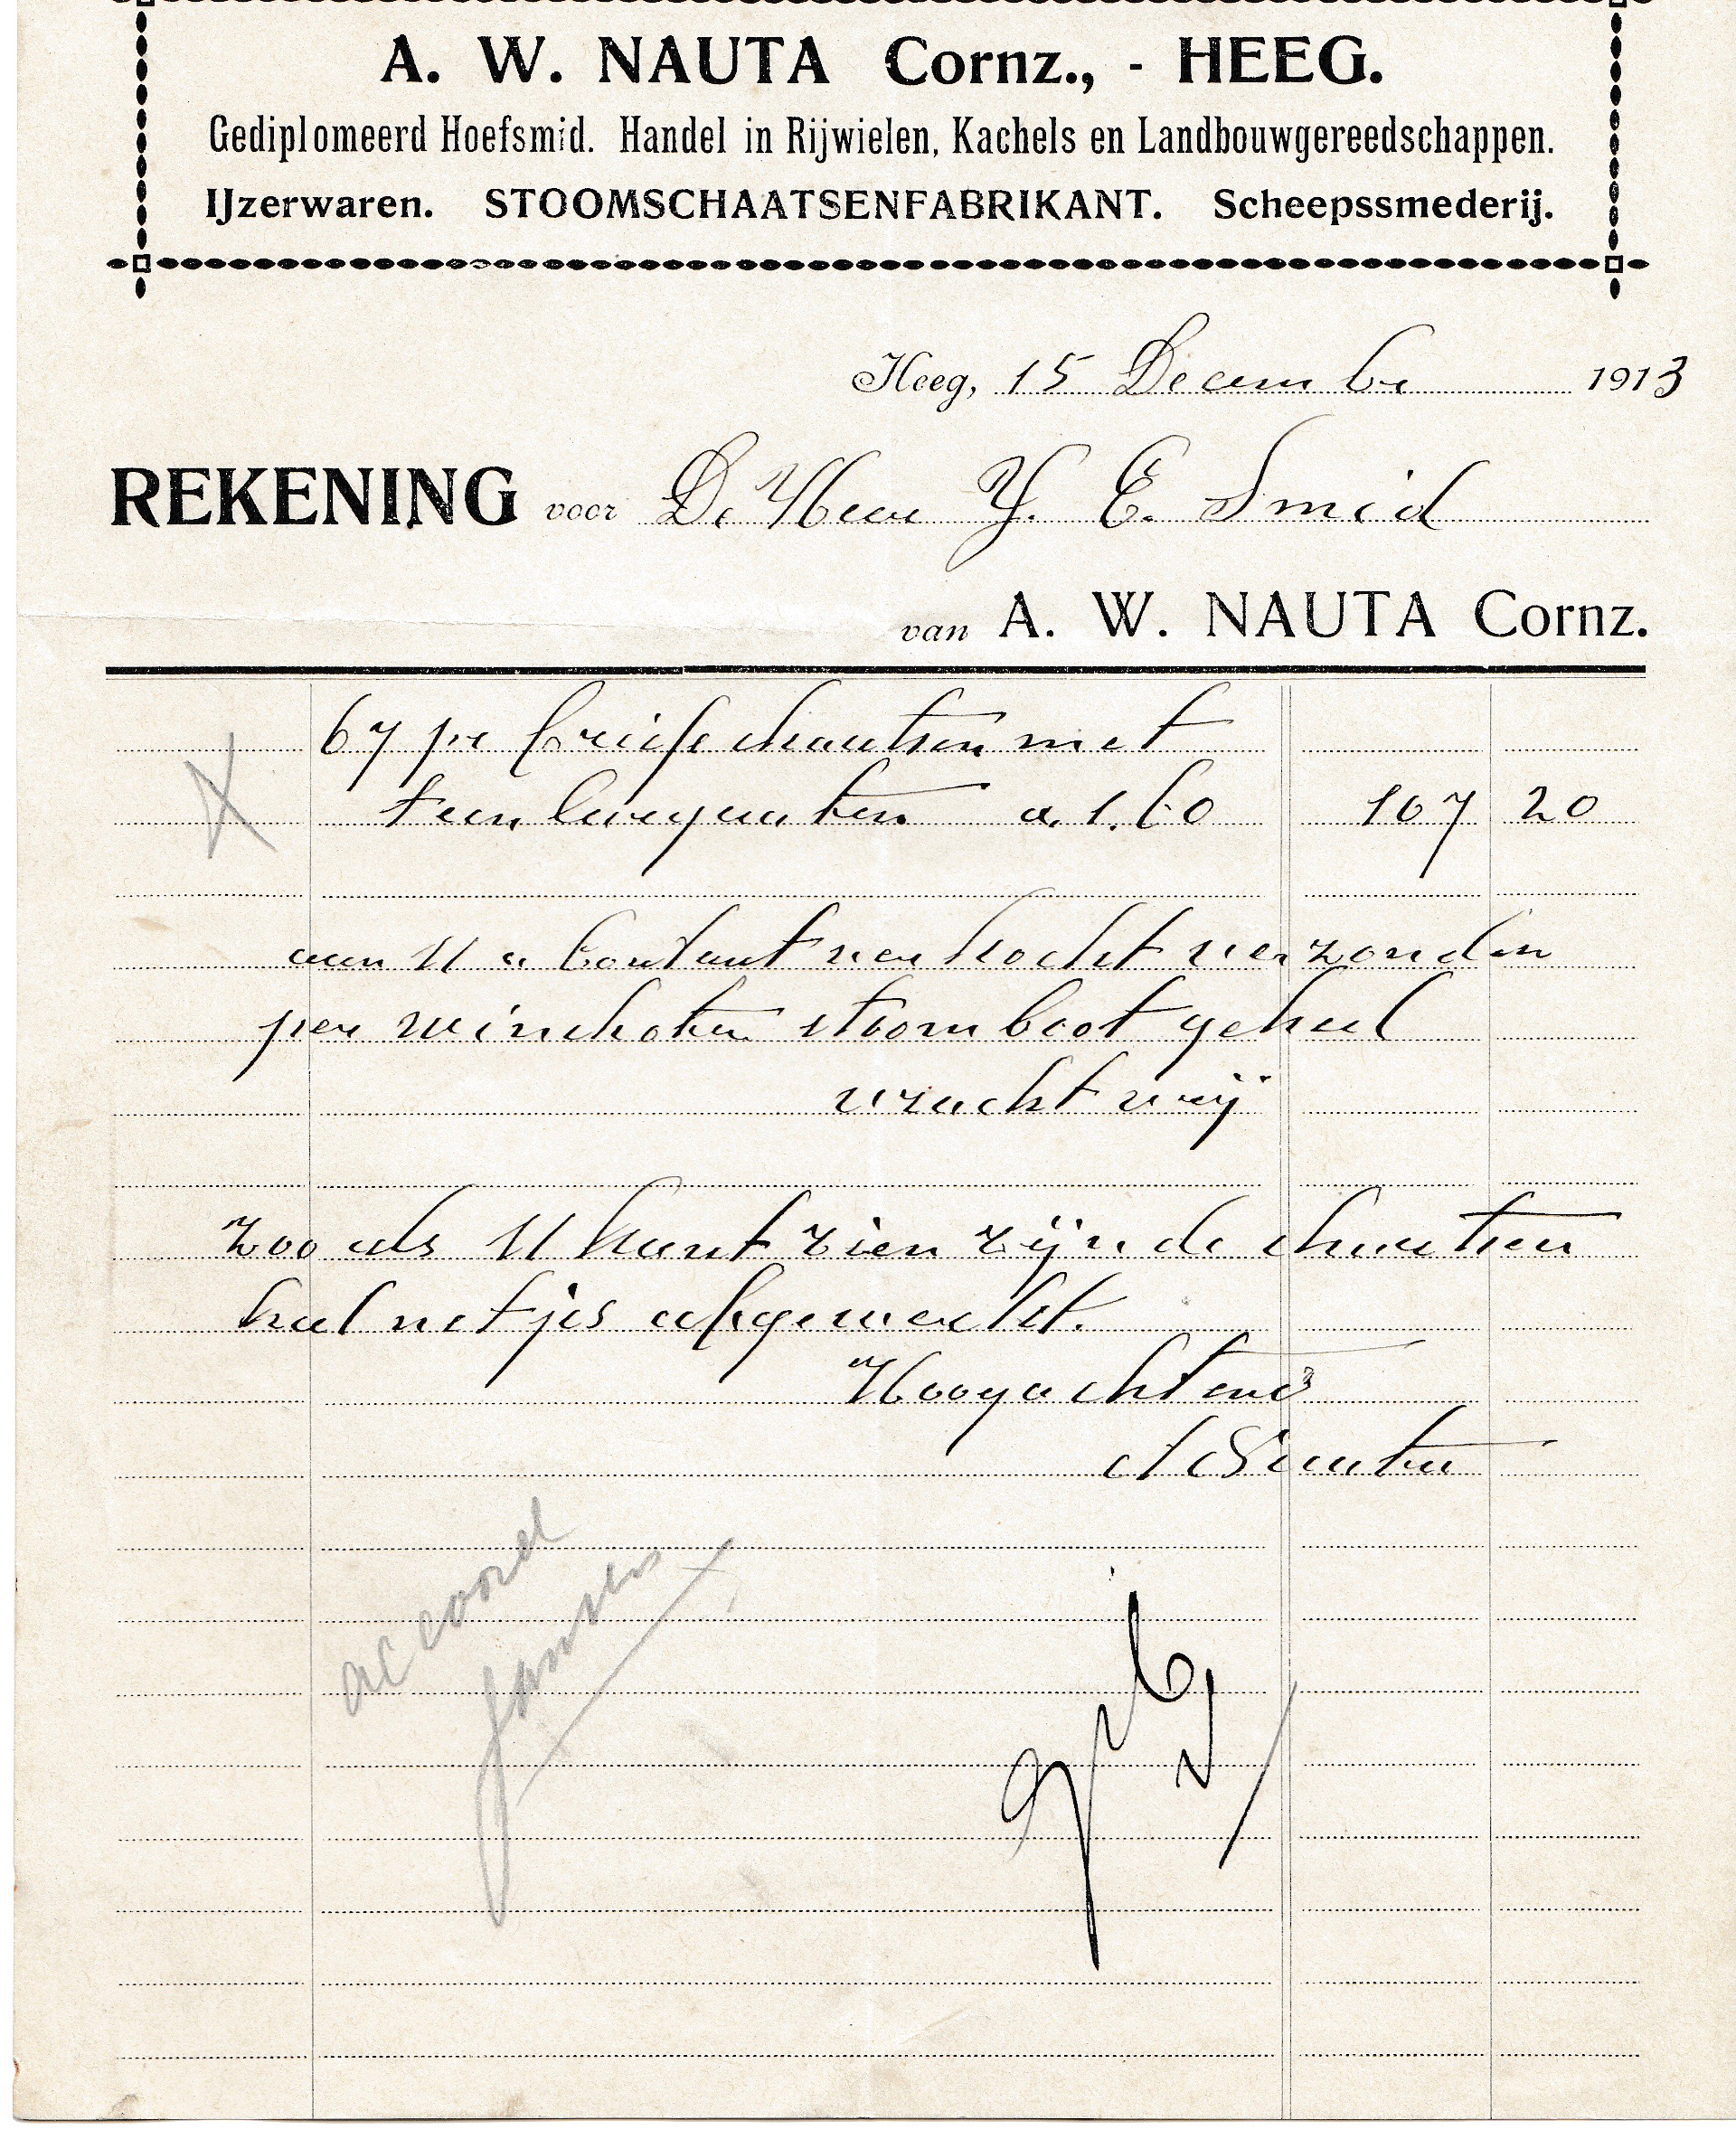 A. W. NAUTA Cornz., - HEEG.
Gediplomeerd Hoefsmid. Handel in Rijwielen, Kachels en Landbouwgereedschappen.
IJzerwaren. STOOMSCHAATSENFABRIKANT. Scheepssmederij.
Heeg, 15 December 1913
REKENING voor De Heer Y. E. Smid
van A. W. NAUTA Cornz.
67 pr Friesche schaatsen met
a 1.60 107 20
aan U a Contant verkocht verzonden
per winschoten stoomboot geheel
vracht vrij
zoo als U kunt zien zijn de schaatsen
heel netjes afgewerkt.
Hoogachtend
A Nauta
accoord